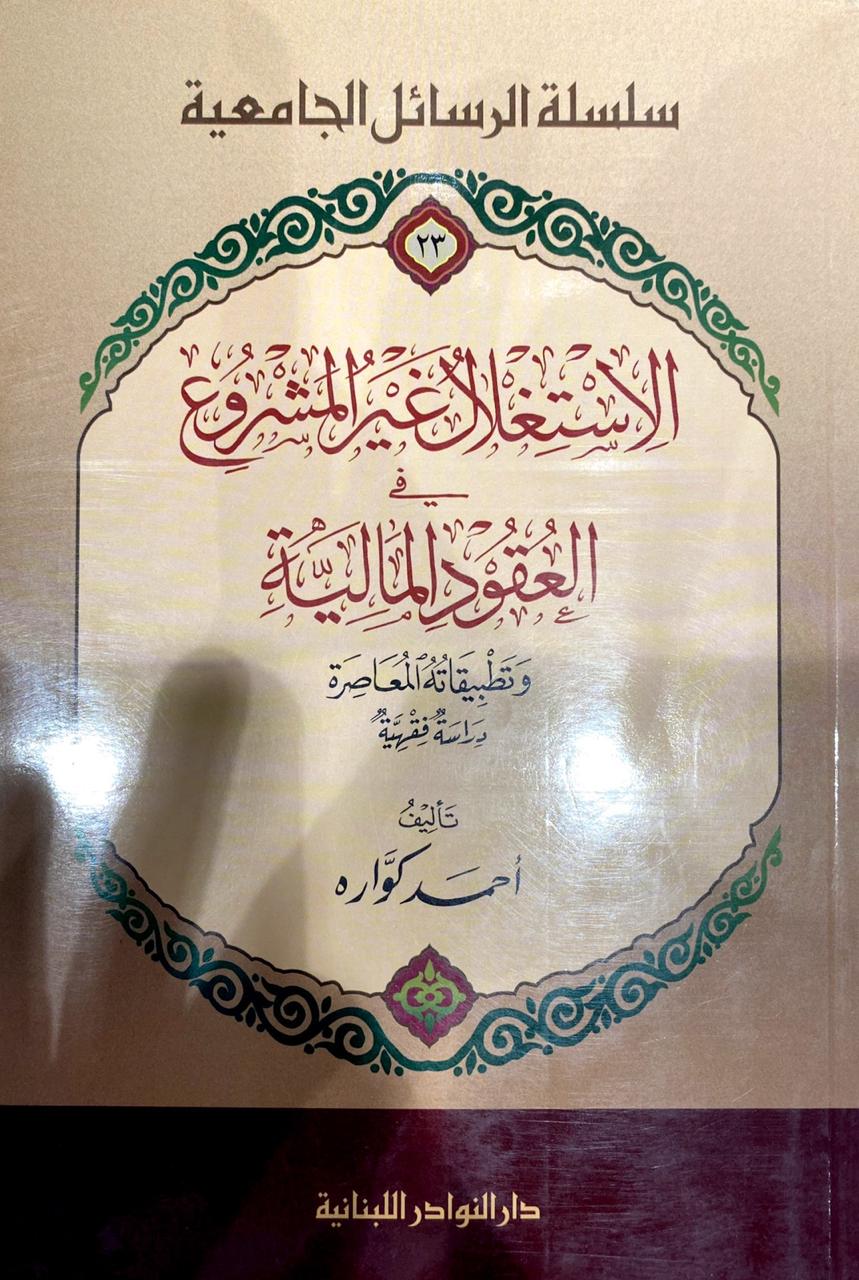 سلسلة الرسائل الجامعية
٢٣
الِاسْتِغْلَالُ غَيْرُ المَشْرُوعِ
في
العُقُودِ المَالِيَّةِ
وَتَطْبِيقَاتُهُ المُعَاصِرَة
دِرَاسَةٌ فِقْهِيَّةٌ
تَأليْفُ
أحمَد كوَّاره
دار النوادر اللبنانية